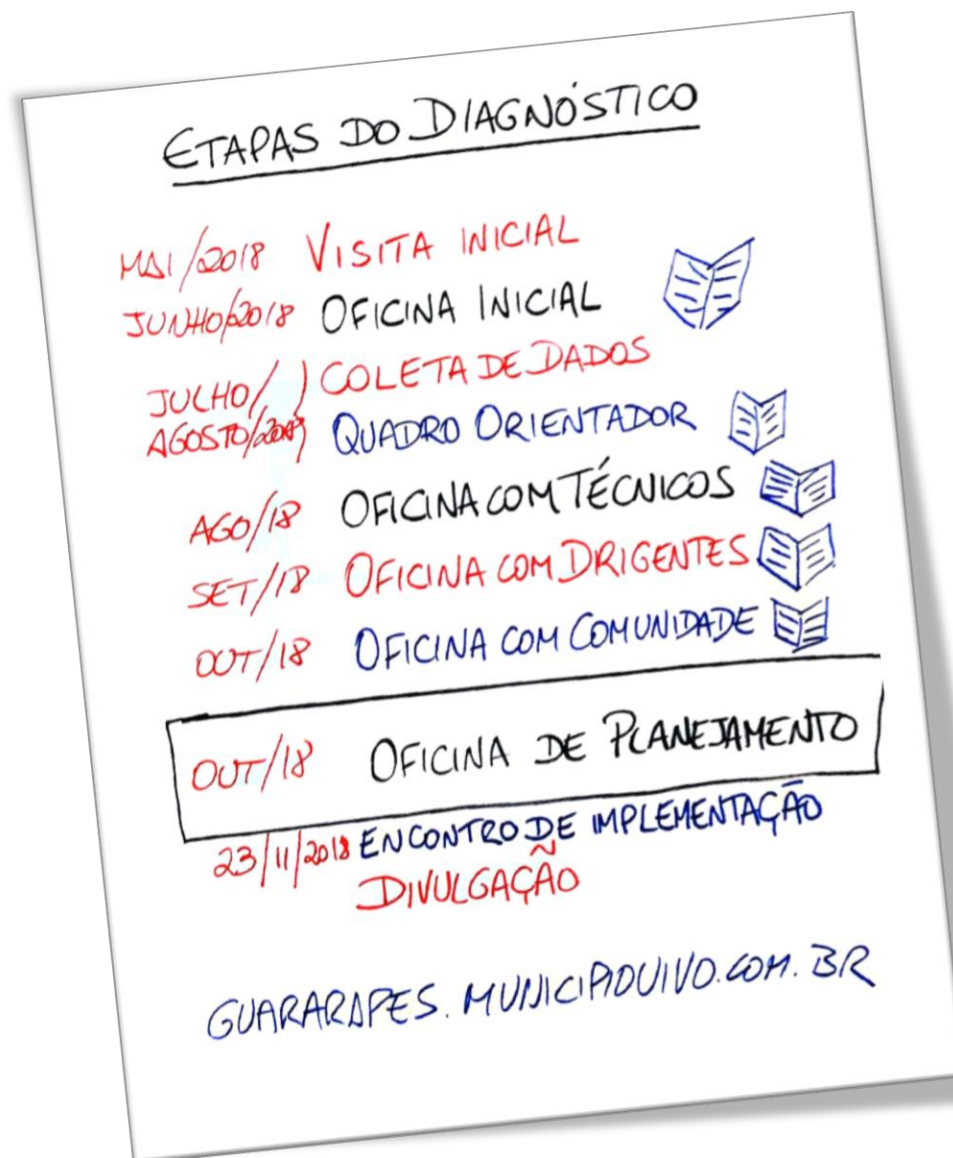 ETAPAS DO DIAGNÓSTICO
MAI/2018 VISITA INICIAL
JUNHO/2018 OFICINA INICIAL
JULHO/ ) COLETA DE DADOS
AGOSTO/2018) QUADRO ORIENTADOR
AGO/18 OFICINA COM TÉCNICOS
SET/18 OFICINA COM DIRIGENTES
OUT/18 OFICINA COM COMUNIDADE
OUT/18 OFICINA DE PLANEJAMENTO
23/11/2018 ENCONTRO DE IMPLEMENTAÇÃO
DIVULGAÇÃO
GUARARAPES.MUNICIPIOVIVO.COM.BR